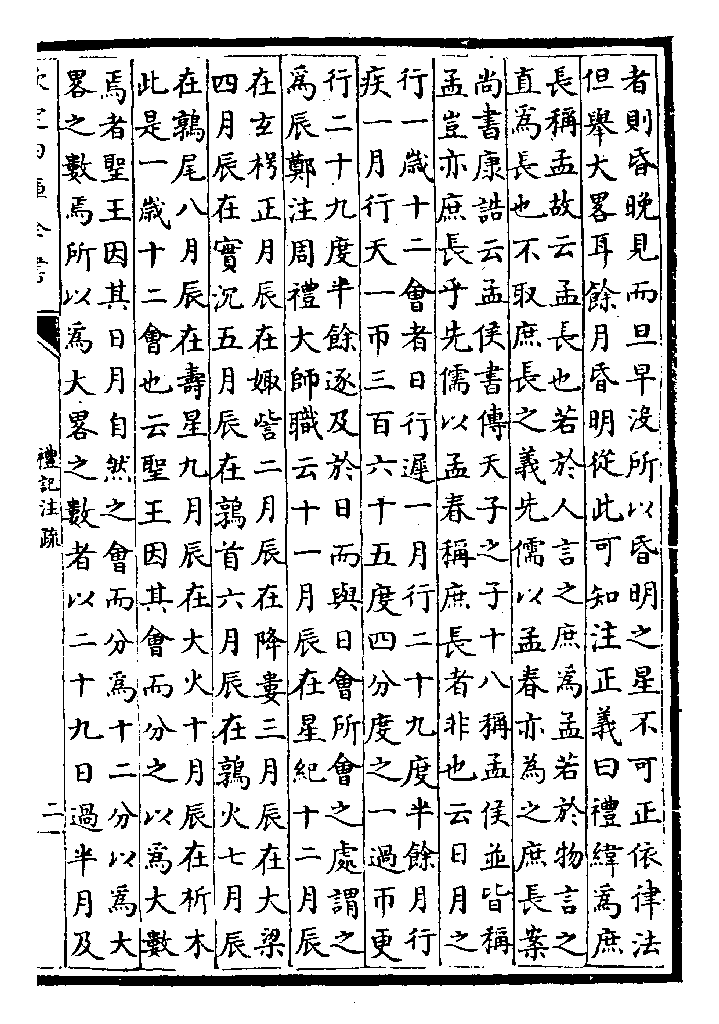 者則昏晚見而旦早没所以昏明之星不可正依律法
但舉大畧耳餘月昏明從此可知注正義曰禮緯爲庶
長稱孟故云孟長也若於人言之庶爲孟若於物言之
直爲長也不取庶長之義先儒以孟春亦為之庶長案
尚書康誥云孟侯書傳天子之子十八稱孟侯並皆稱
孟豈亦庶長乎先儒以孟春稱庶長者非也云日月之
行一嵗十二會者日行遲一月行二十九度半餘月行
疾一月行天一帀三百六十五度四分度之一過帀更
行二十九度半餘逐及於日而與日會所會之處謂之
爲辰鄭注周禮大師職云十一月辰在星紀十二月辰
在玄枵正月辰在娵訾二月辰在降婁三月辰在大梁
四月辰在實沉五月辰在鶉首六月辰在鶉火七月辰
在鶉尾八月辰在壽星九月辰在大火十月辰在析木
此是一嵗十二會也云聖王因其會而分之以爲大數
焉者聖王因其日月自然之會而分爲十二分以爲大
畧之數焉所以爲大畧之數者以二十九日過半月及
禮記注疏
二